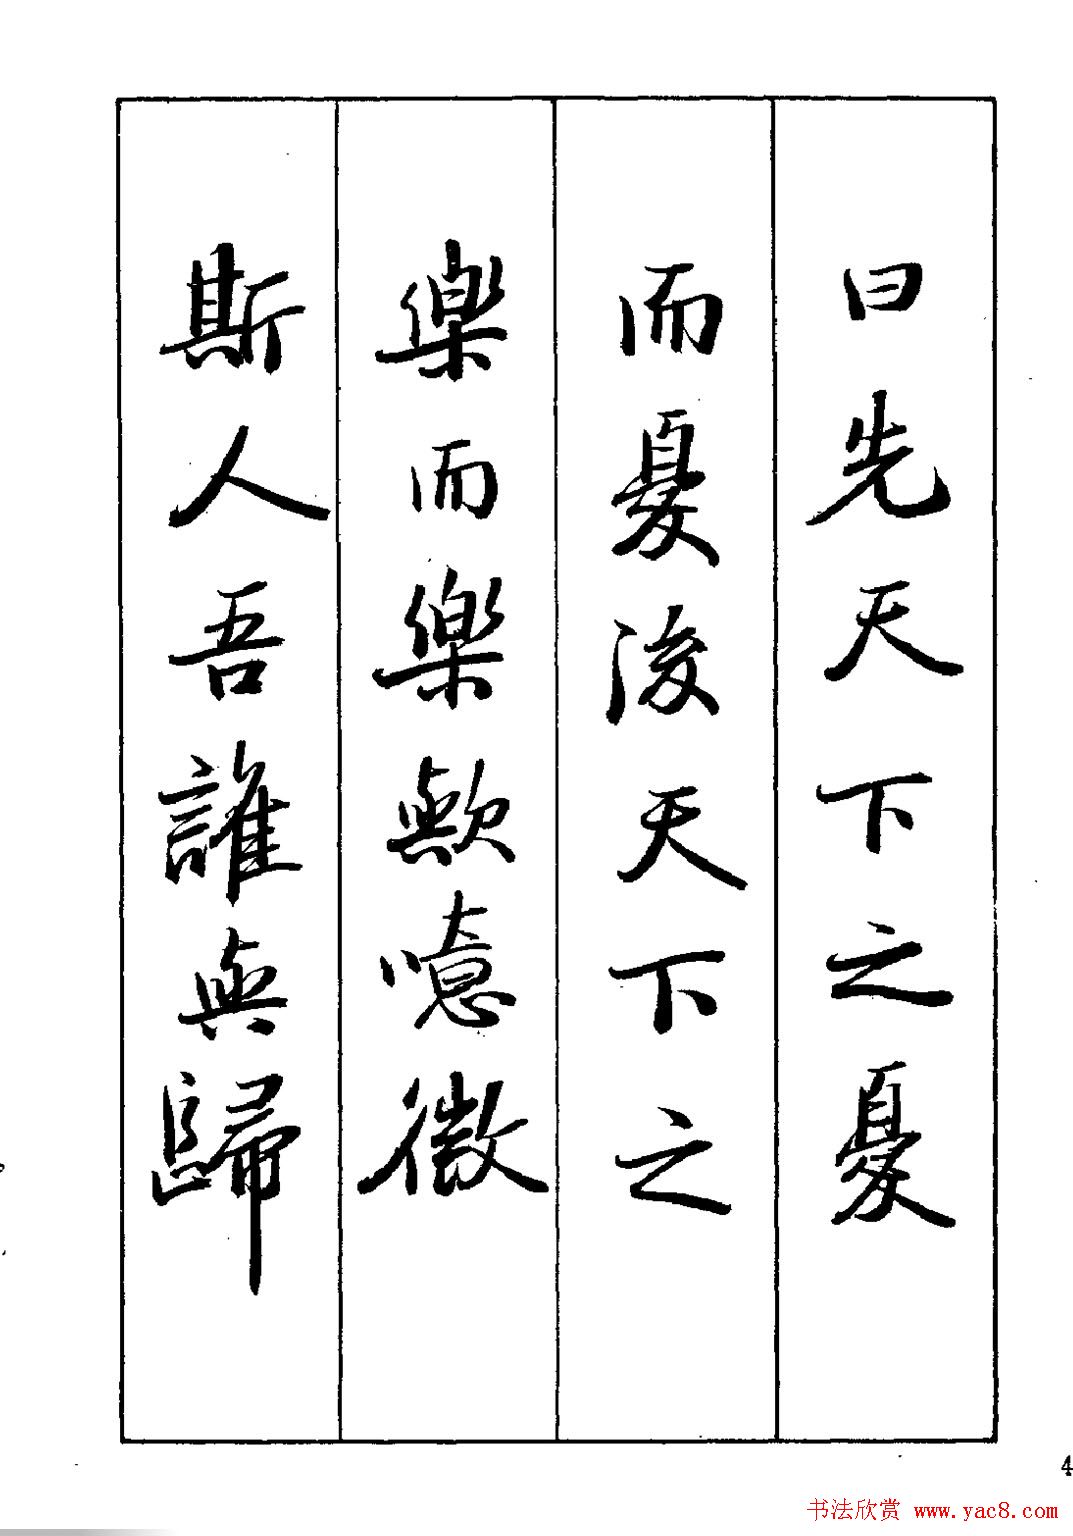 曰先天下之憂
而憂後天下之
樂而樂歟噫微
斯人吾誰與歸
4
书法欣赏 www.yac8.com